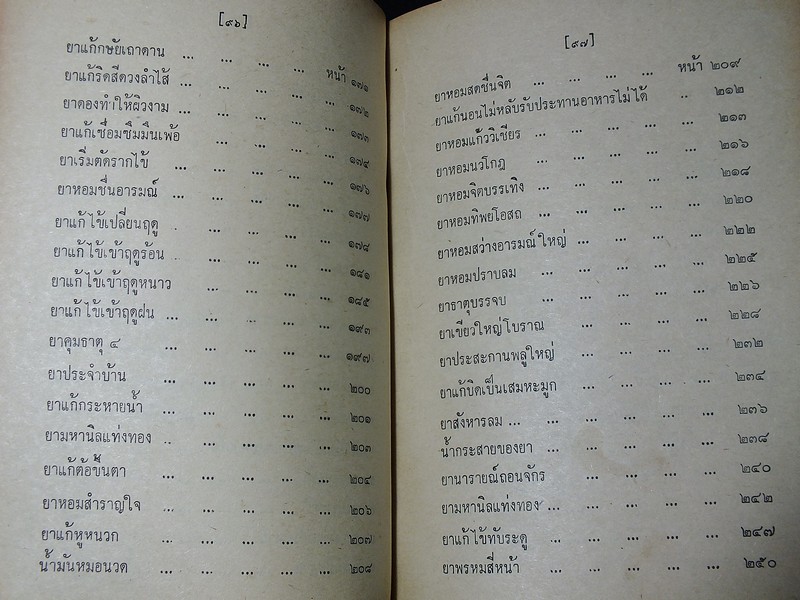 [๙๖]
ยาแก้กษัยเถาดาน ... ... ... ... หน้า ๑๗๑
ยาแก้ริดสีดวงลำไส้ ... ... ... ... ๑๗๒
ยาดองทำให้ผิวงาม ... ... ... ... ๑๗๓
ยาแก้เชื่อมซึมมึนเพ้อ ... ... ... ๑๗๔
ยาเริ่มตัดรากไข้ ... ... ... ... ๑๗๖
ยาหอมชื่นอารมณ์ ... ... ... ... ๑๗๗
ยาแก้ไข้เปลี่ยนฤดู . ... ... ... ๑๗๘
ยาแก้ไข้เข้าฤดูร้อน . ... ... ... ๑๘๑
ยาแก้ไข้เข้าฤดูหนาว ... ... ... ๑๘๕
ยาแก้ไข้เข้าฤดูฝน ... ... ... ... ๑๙๓
ยาคุมธาตุ ๔ ... ... ... ... ... ๑๙๗
ยาประจำบ้าน ... ... ... ... ... ๒๐๐
ยาแก้กระหายน้ำ ... ... ... ... ... ๒๐๑
ยามหานิลแท่งทอง .. ... ... ... ... ๒๐๓
ยาแก้ต้อขึ้นตา ... ... ... ... ... ๒๐๔
ยาหอมสำราญใจ ... ... ... ... ... ๒๐๖
ยาแก้หูหนวก ... ... ... ... ... ๒๐๗
น้ำมันหมอนวด ... ... ... ... ... ๒๐๘
[๙๗]
ยาหอมสดชื่นจิต ... ... ... ... หน้า ๒๐๙
ยาแก้นอนไม่หลับรับประทานอาหารไม่ได้ .. ๒๑๒
ยาหอมแก้ววิเชียร ... ... ... ... ... ๒๑๓
ยาหอมนวโกฎ ... ... ... ... ... ๒๑๖
ยาหอมจิตบรรเทิง ... ... ... ... ... ๒๑๘
ยาหอมทิพย์โอสถ ... ... ... ... ... ๒๒๐
ยาหอมสว่างอารมณ์ใหญ่ ... ... ... ... ๒๒๒
ยาหอมปราบลม ... ... ... ... ... ๒๒๕
ยาธาตุบรรจบ ... ... ... ... ... ๒๒๖
ยาเขียวใหญ่โบราณ ... ... ... ... ๒๒๘
ยาประสะกานพลูใหญ่ ... ... ... ... ๒๓๒
ยาแก้บิดเป็นเสมหะมูก ... ... ... ... ๒๓๔
ยาสังหารลม ... ... ... ... ... ๒๓๖
น้ำกระสายของยา ... ... ... ... ๒๓๘
ยานารายณ์ถอนจักร ... ... ... ... ๒๔๐
ยามหานิลแท่งทอง ... ... ... ... ... ๒๔๒
ยาแก้ไข้ทับระดู ... ... ... ... ๒๔๗
ยาพรหมสี่หน้า ... ... ... ... ๒๕๐